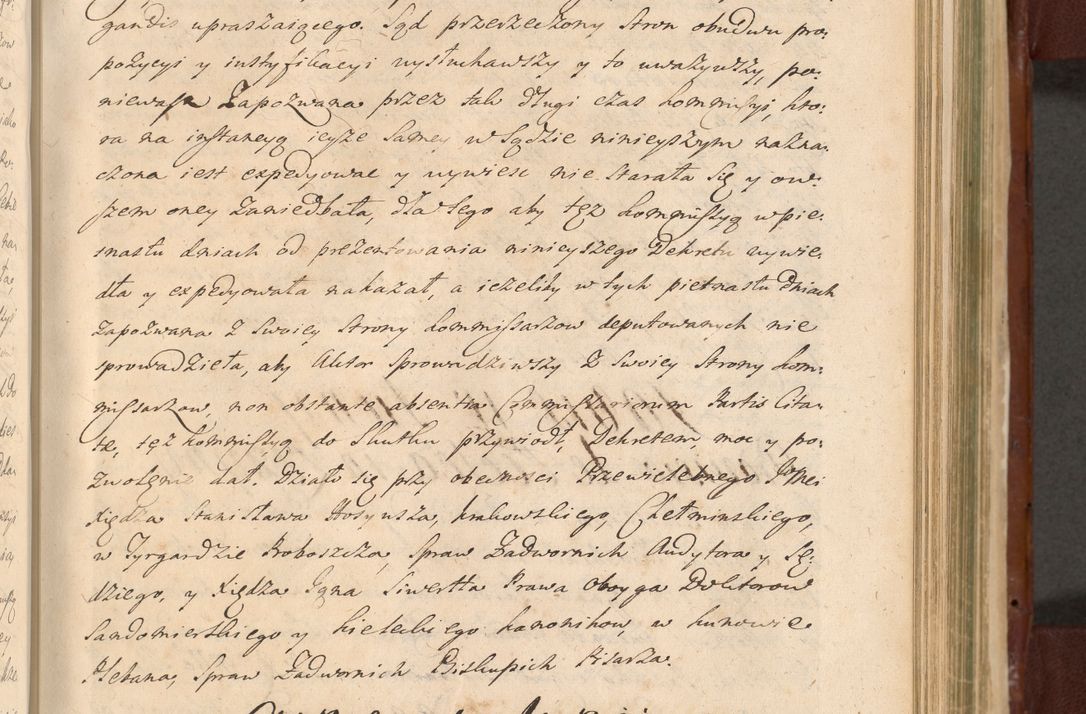 gandis upraszaiącego. Sąd przerzeczony Stron obudwu pro-
pozycyi y iustyfikacyi wysłuchawszy y to uważywszy, po-
nieważ Zapozwana przez tak długi czas kommissyi, kto-
ra na instancyą ieyże samey w Sądzie ninieyszym nazna-
czona iest expedyować y wywieść nie starała się y ow-
szem oney zaniedbała, dla tego aby tęż kommissyą w pie-
tnastu dniach od prezentowania ninieyszego Dekretu wywie-
dła y expedyowała nakazał, a ieżeliby w tych pietnastu dniach
Zapozwana z swoiey strony kommissarzow deputowanych nie
sprowadzieła, aby Aktor sprowadziwszy z swoiey strony kom-
missarzow, non obstante absentia Commissariorum Partis Cita-
tæ, tęż kommissyą do skutku przywiodł, Dekretem moc y po-
zwolenie dał. Działo się przy obecności Przewielebnego Jmci
Xiędza Stanisława Hosyusza, krakowskiego, Chełminskiego,
w Tyrgardzie Proboszcza, spraw Zadwornich Audytora y Sę-
dziego, y Xiędza Jgna Siwertha Prawa Oboyga Doktorow
Sandomierskiego y kieleckiego kanonikow, w kunowie
Plebana, spraw Zadwornich Biskupich Pisarza.